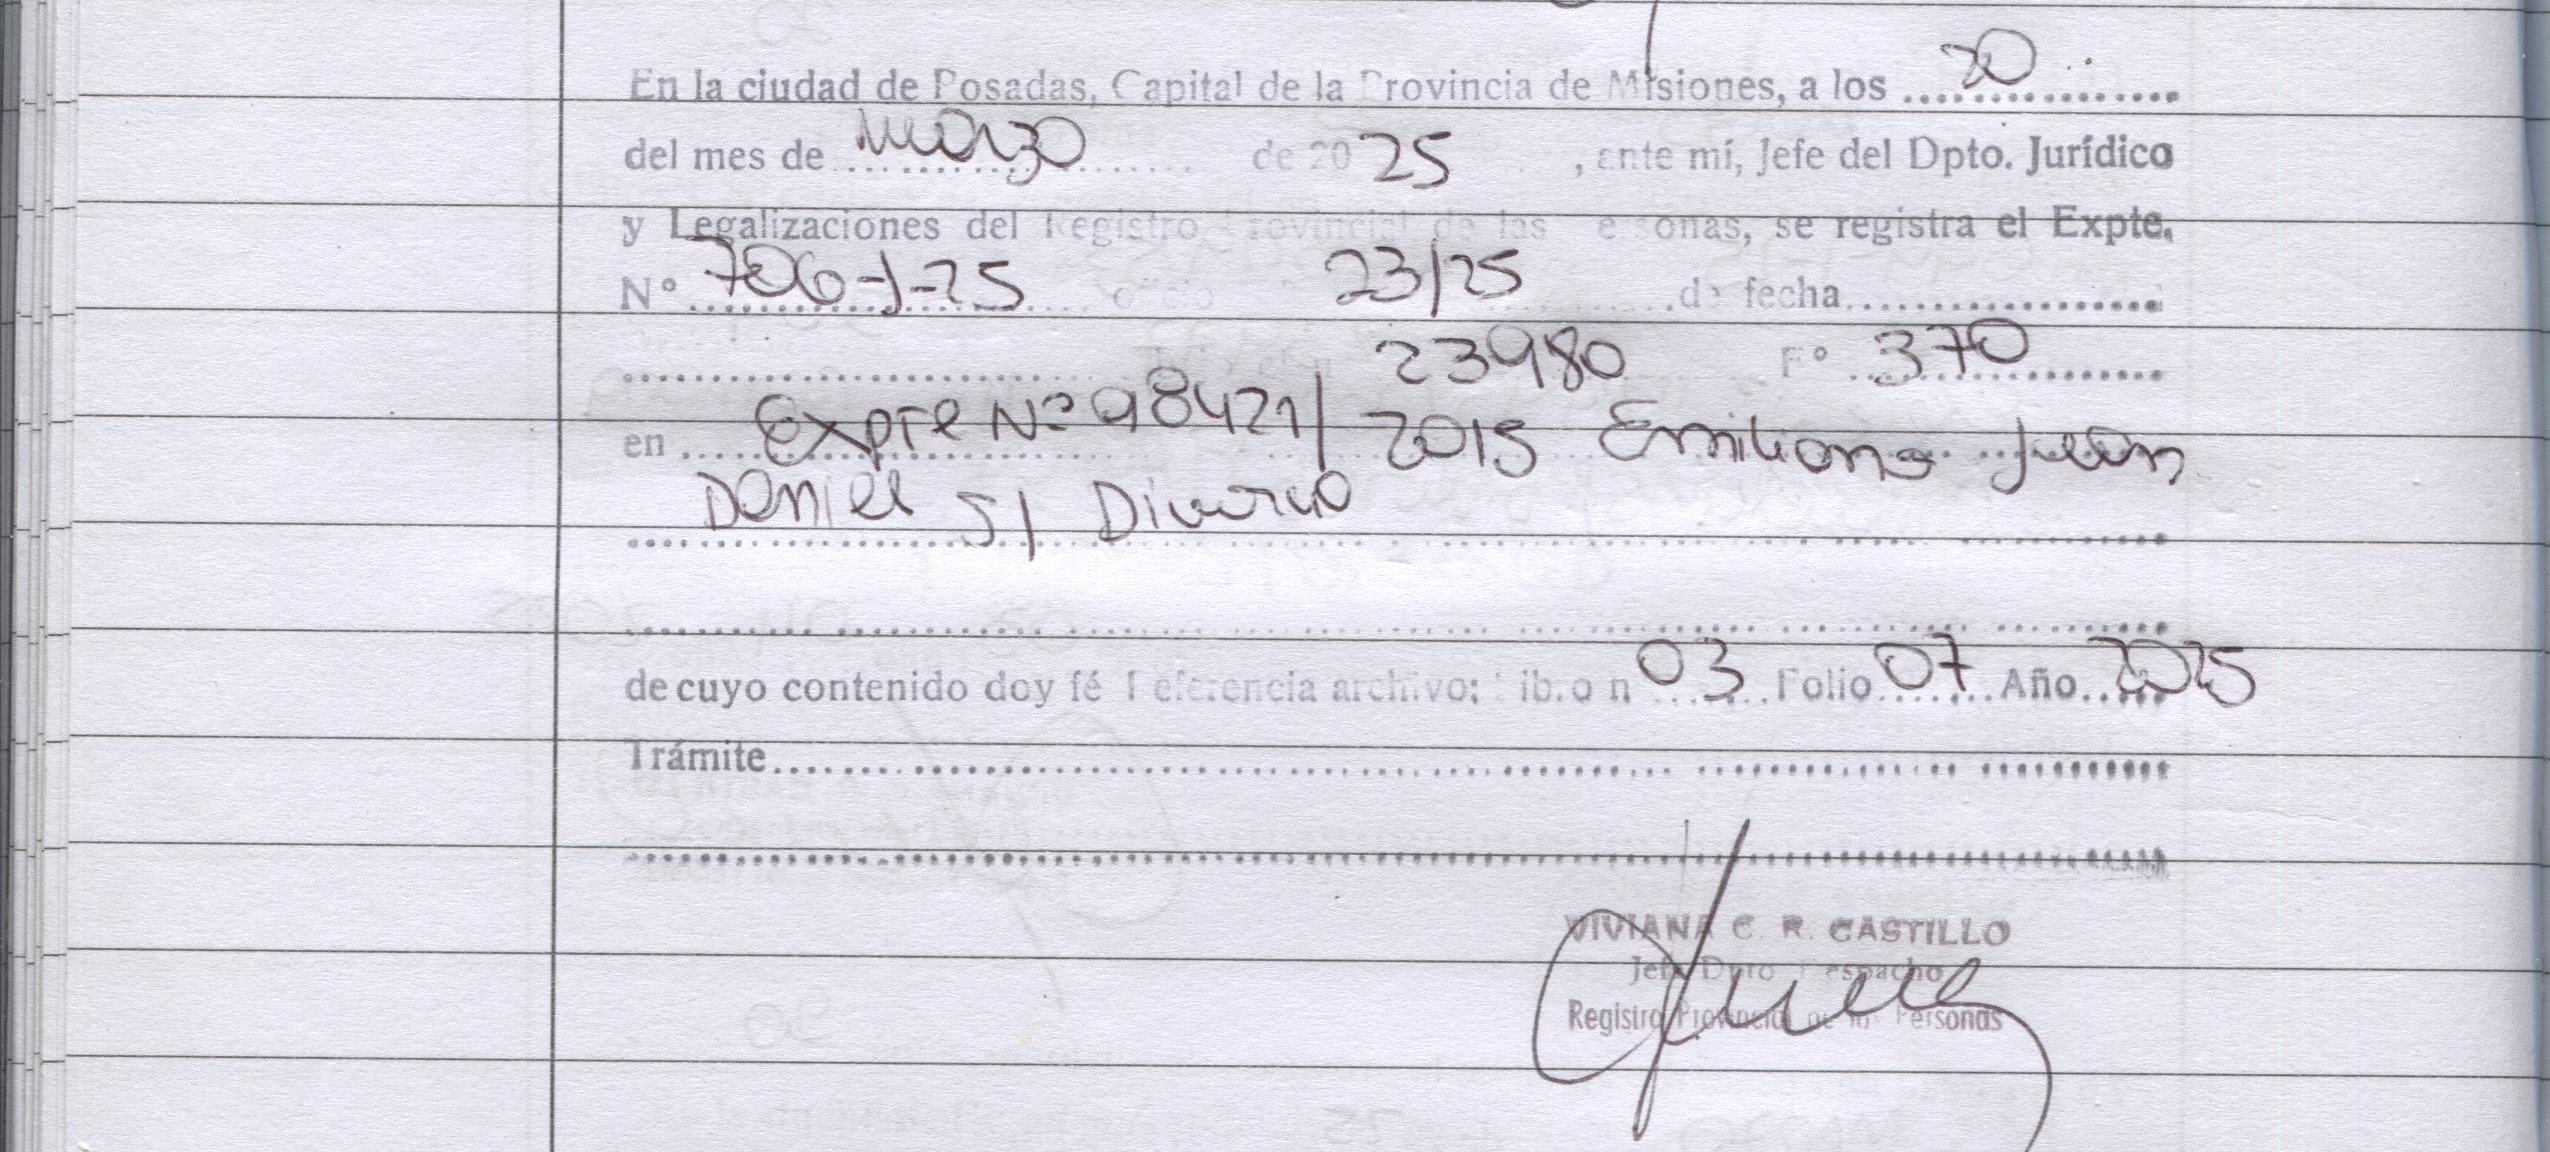 En la ciudad de Posadas, Capital de la Provincia de Misiones, a los 20
del mes de marzo de 2025, ante mí, Jefe del Dpto. Jurídico
y Legalizaciones del Registro Provincial de las Personas, se registra el Expte.
N° 706-J-25 oficio 23/25 de fecha
23980 F° 370
en Expte Nº 98421/2015 Emiliano Juan
Daniel S/ Divorcio
de cuyo contenido doy fé Referencia archivo: Libro n 03 Folio 07 Año 2025
Trámite
VIVIANA C. R. CASTILLO
Jefe Dpto Despacho
Registro Provincial de las Personas